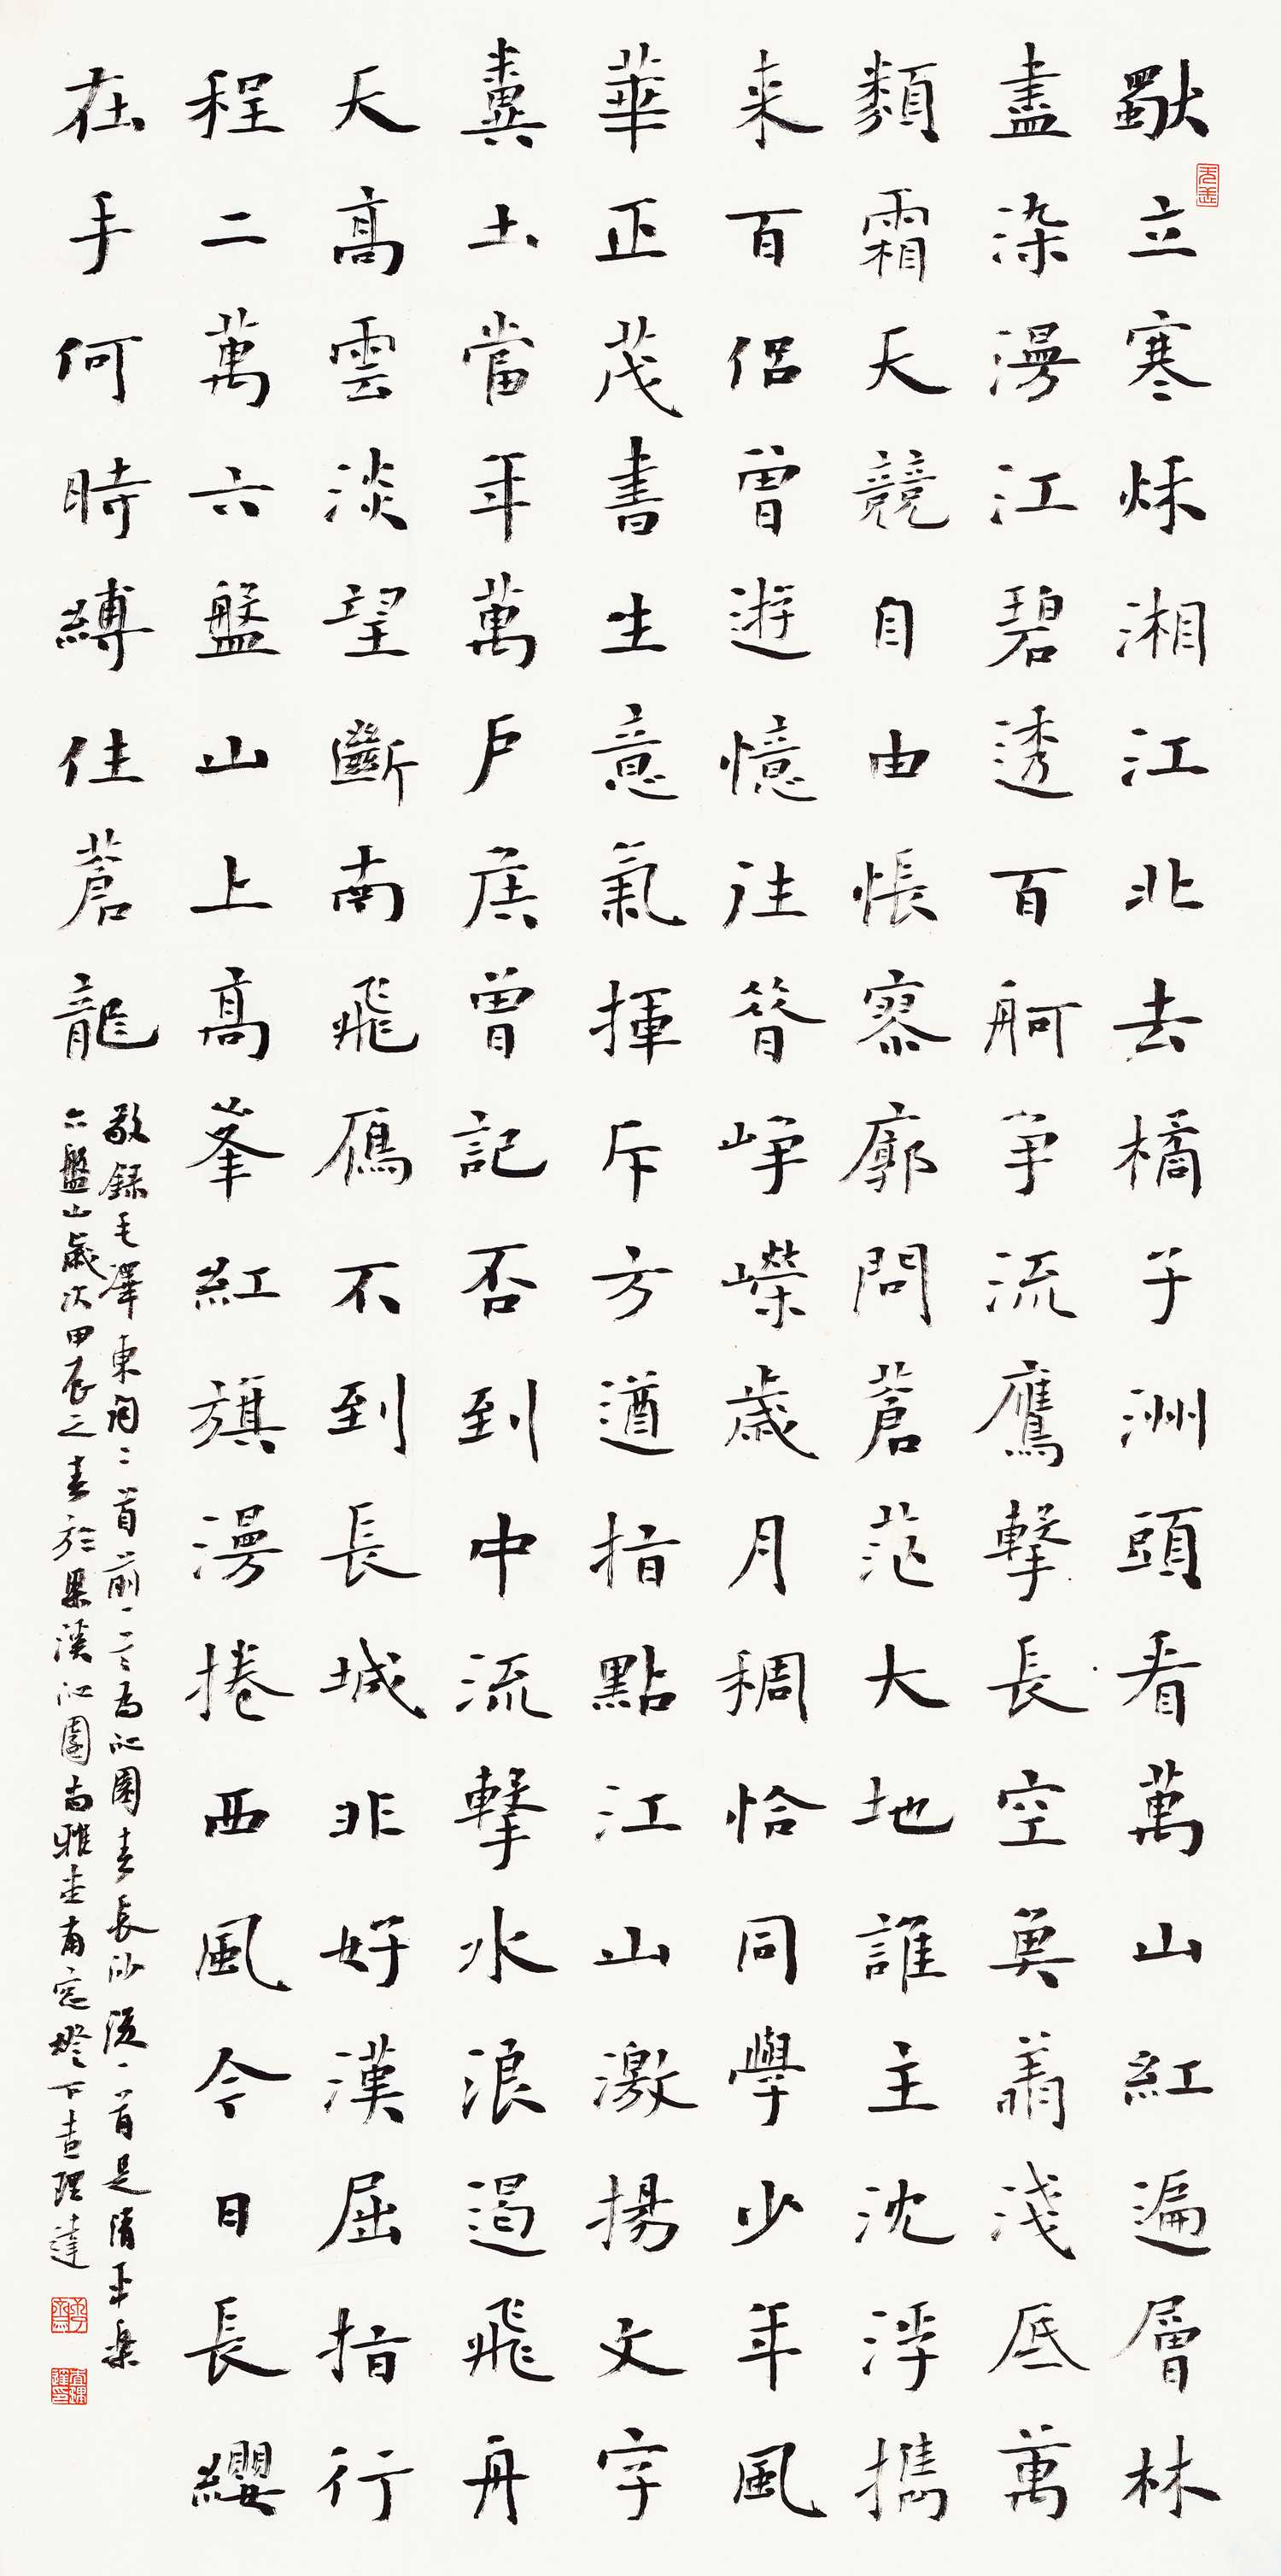 獨立寒秌湘江北去橘子洲頭看萬山紅遍層林
盡染漫江碧透百舸爭流鷹擊長空魚翔淺底萬
類霜天競自由悵寥廓問蒼茫大地誰主沈浮攜
来百侣曾遊憶往昔崢嶸歲月稠恰同學少年風
華正茂書生意氣揮斥方遒指點江山激揚文字
糞土當年萬戶侯曾記否到中流擊水浪遏飛舟
天高雲淡望斷南飛鴈不到長城非好漢屈指行
程二萬六盤山上高峯紅旗漫捲西風今日長纓
在手何時縛住蒼龍
敬録毛澤東詞二首前一首為沁園春長沙後一首是清平樂
六盤山歲次甲辰之春於梁溪沁園尚雅堂南窗燈下查理達